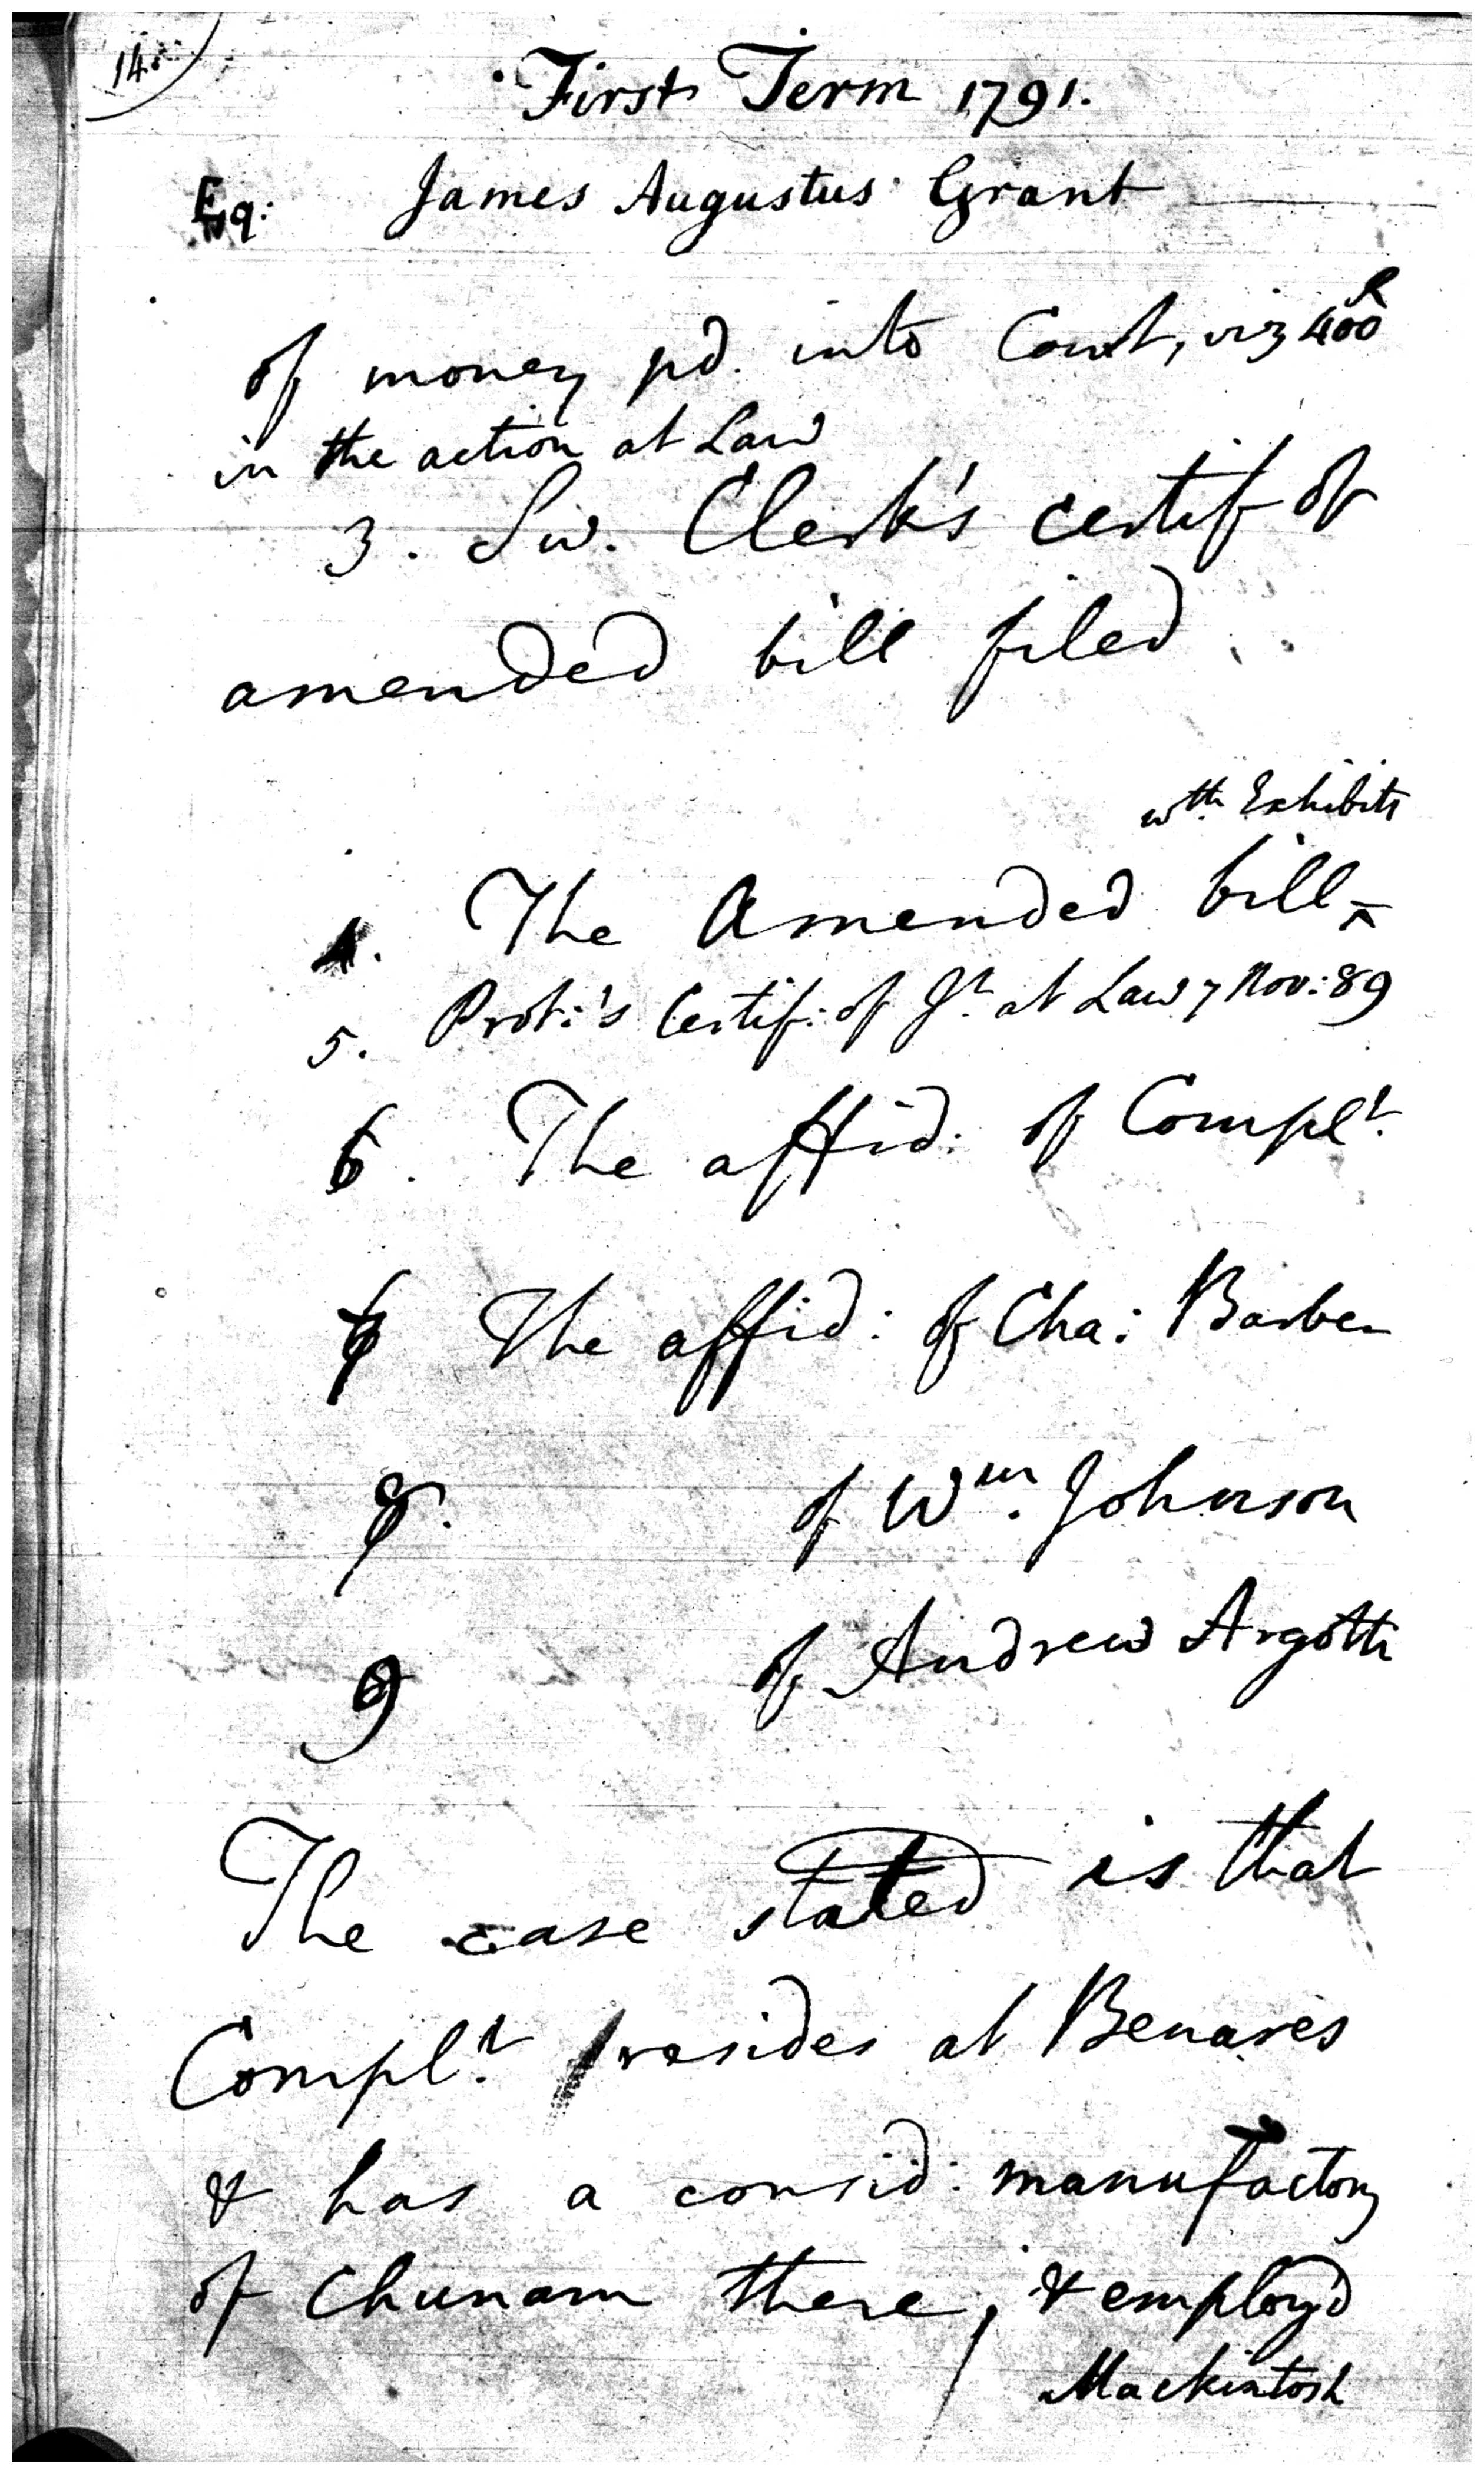 14.
First Term 1791.
Eq: James Augustus Grant
of money pd. into Court, viz 400 R
in the action at Law
3. Sw. Clerk's certif of
amended bill filed
wth Exhibits
4. The Amended bill ^
5. Prot:'s Certif: of Jt. at Law 7 Nov: 89
6. The affid: of Complt.
7 The affid: of Cha: Barber
8. of Wm. Johnson
9 of Andrew Argotti
The case stated is that
Complt. resides at Benares
& has a consid: manufactory
of Chunam there, & employd
Mackintosh